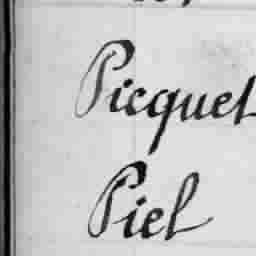 Picquet
Piel